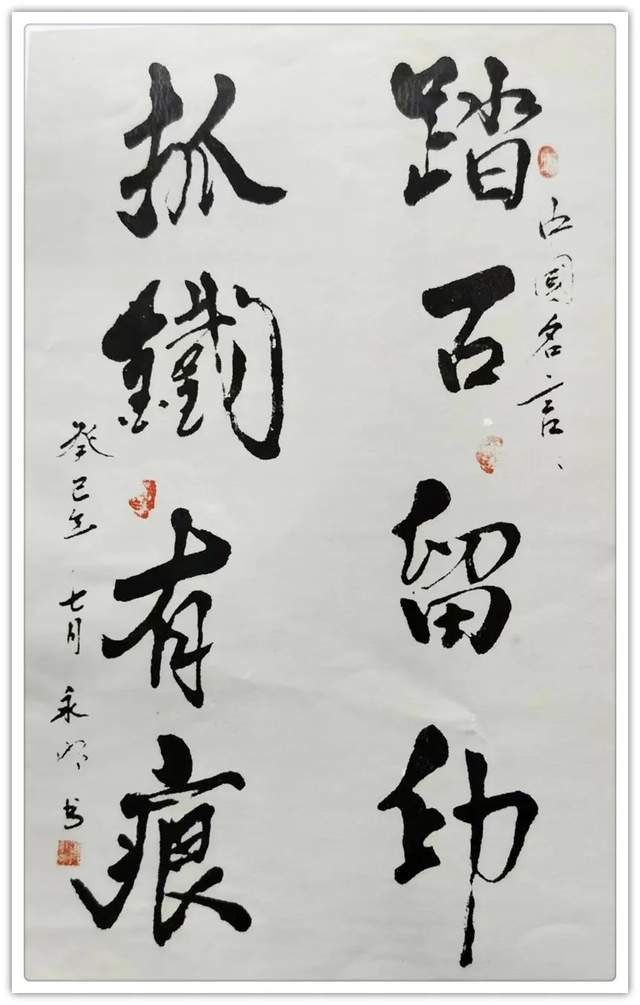 踏石留印
中国名言
抓鐵有痕
癸巳年七月永明书